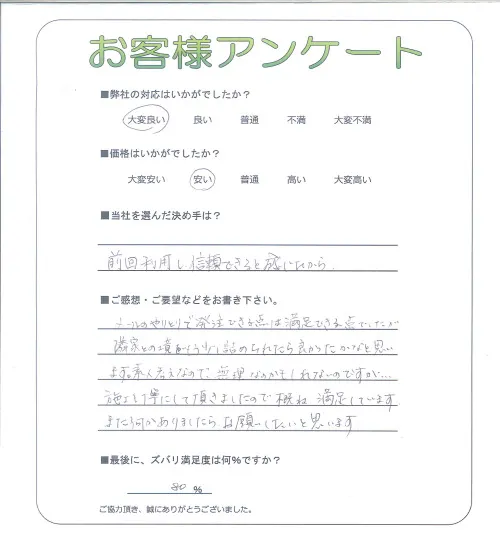 お客様アンケート
■弊社の対応はいかがでしたか？
大変良い 良い 普通 不満 大変不満
■価格はいかがでしたか？
大変安い 安い 普通 高い 大変高い
■当社を選んだ決め手は？
前回利用し信頼できると感じたから。
■ご感想・ご要望などをお書き下さい。
メールのやりとりで発注できる点は満足できる点でしたが
隣家との境がもう少し詰められたら良かったかなと思い
ます。素人考えなので無理なのかもしれないのですが…
施工も丁寧にして頂きましたので概ね満足しています
また何かありましたらお願いしたいと思います
■最後に、ズバリ満足度は何％ですか？
80 %
ご協力頂き、誠にありがとうございました。